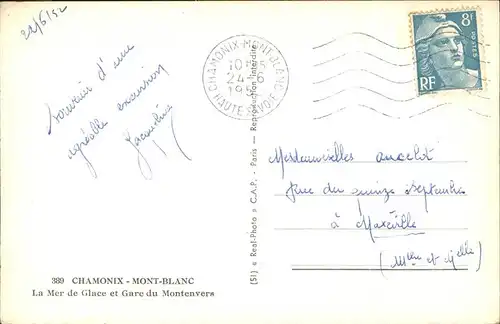 22/6/52
Souvenir d'une
agréable excursion
Jacqueline
CHAMONIX-MONT-BLANC
24-6
HAUTE SAVOIE
8F
POSTES
RF
Mesdemoiselles Ancelot
Rue du quinze Septembre
à Maxéville
(Mthe et Mselle)
(51) « Real-Photo » C.A.P. - Paris — Reproduction interdite
389 CHAMONIX - MONT-BLANC
La Mer de Glace et Gare du Montenvers